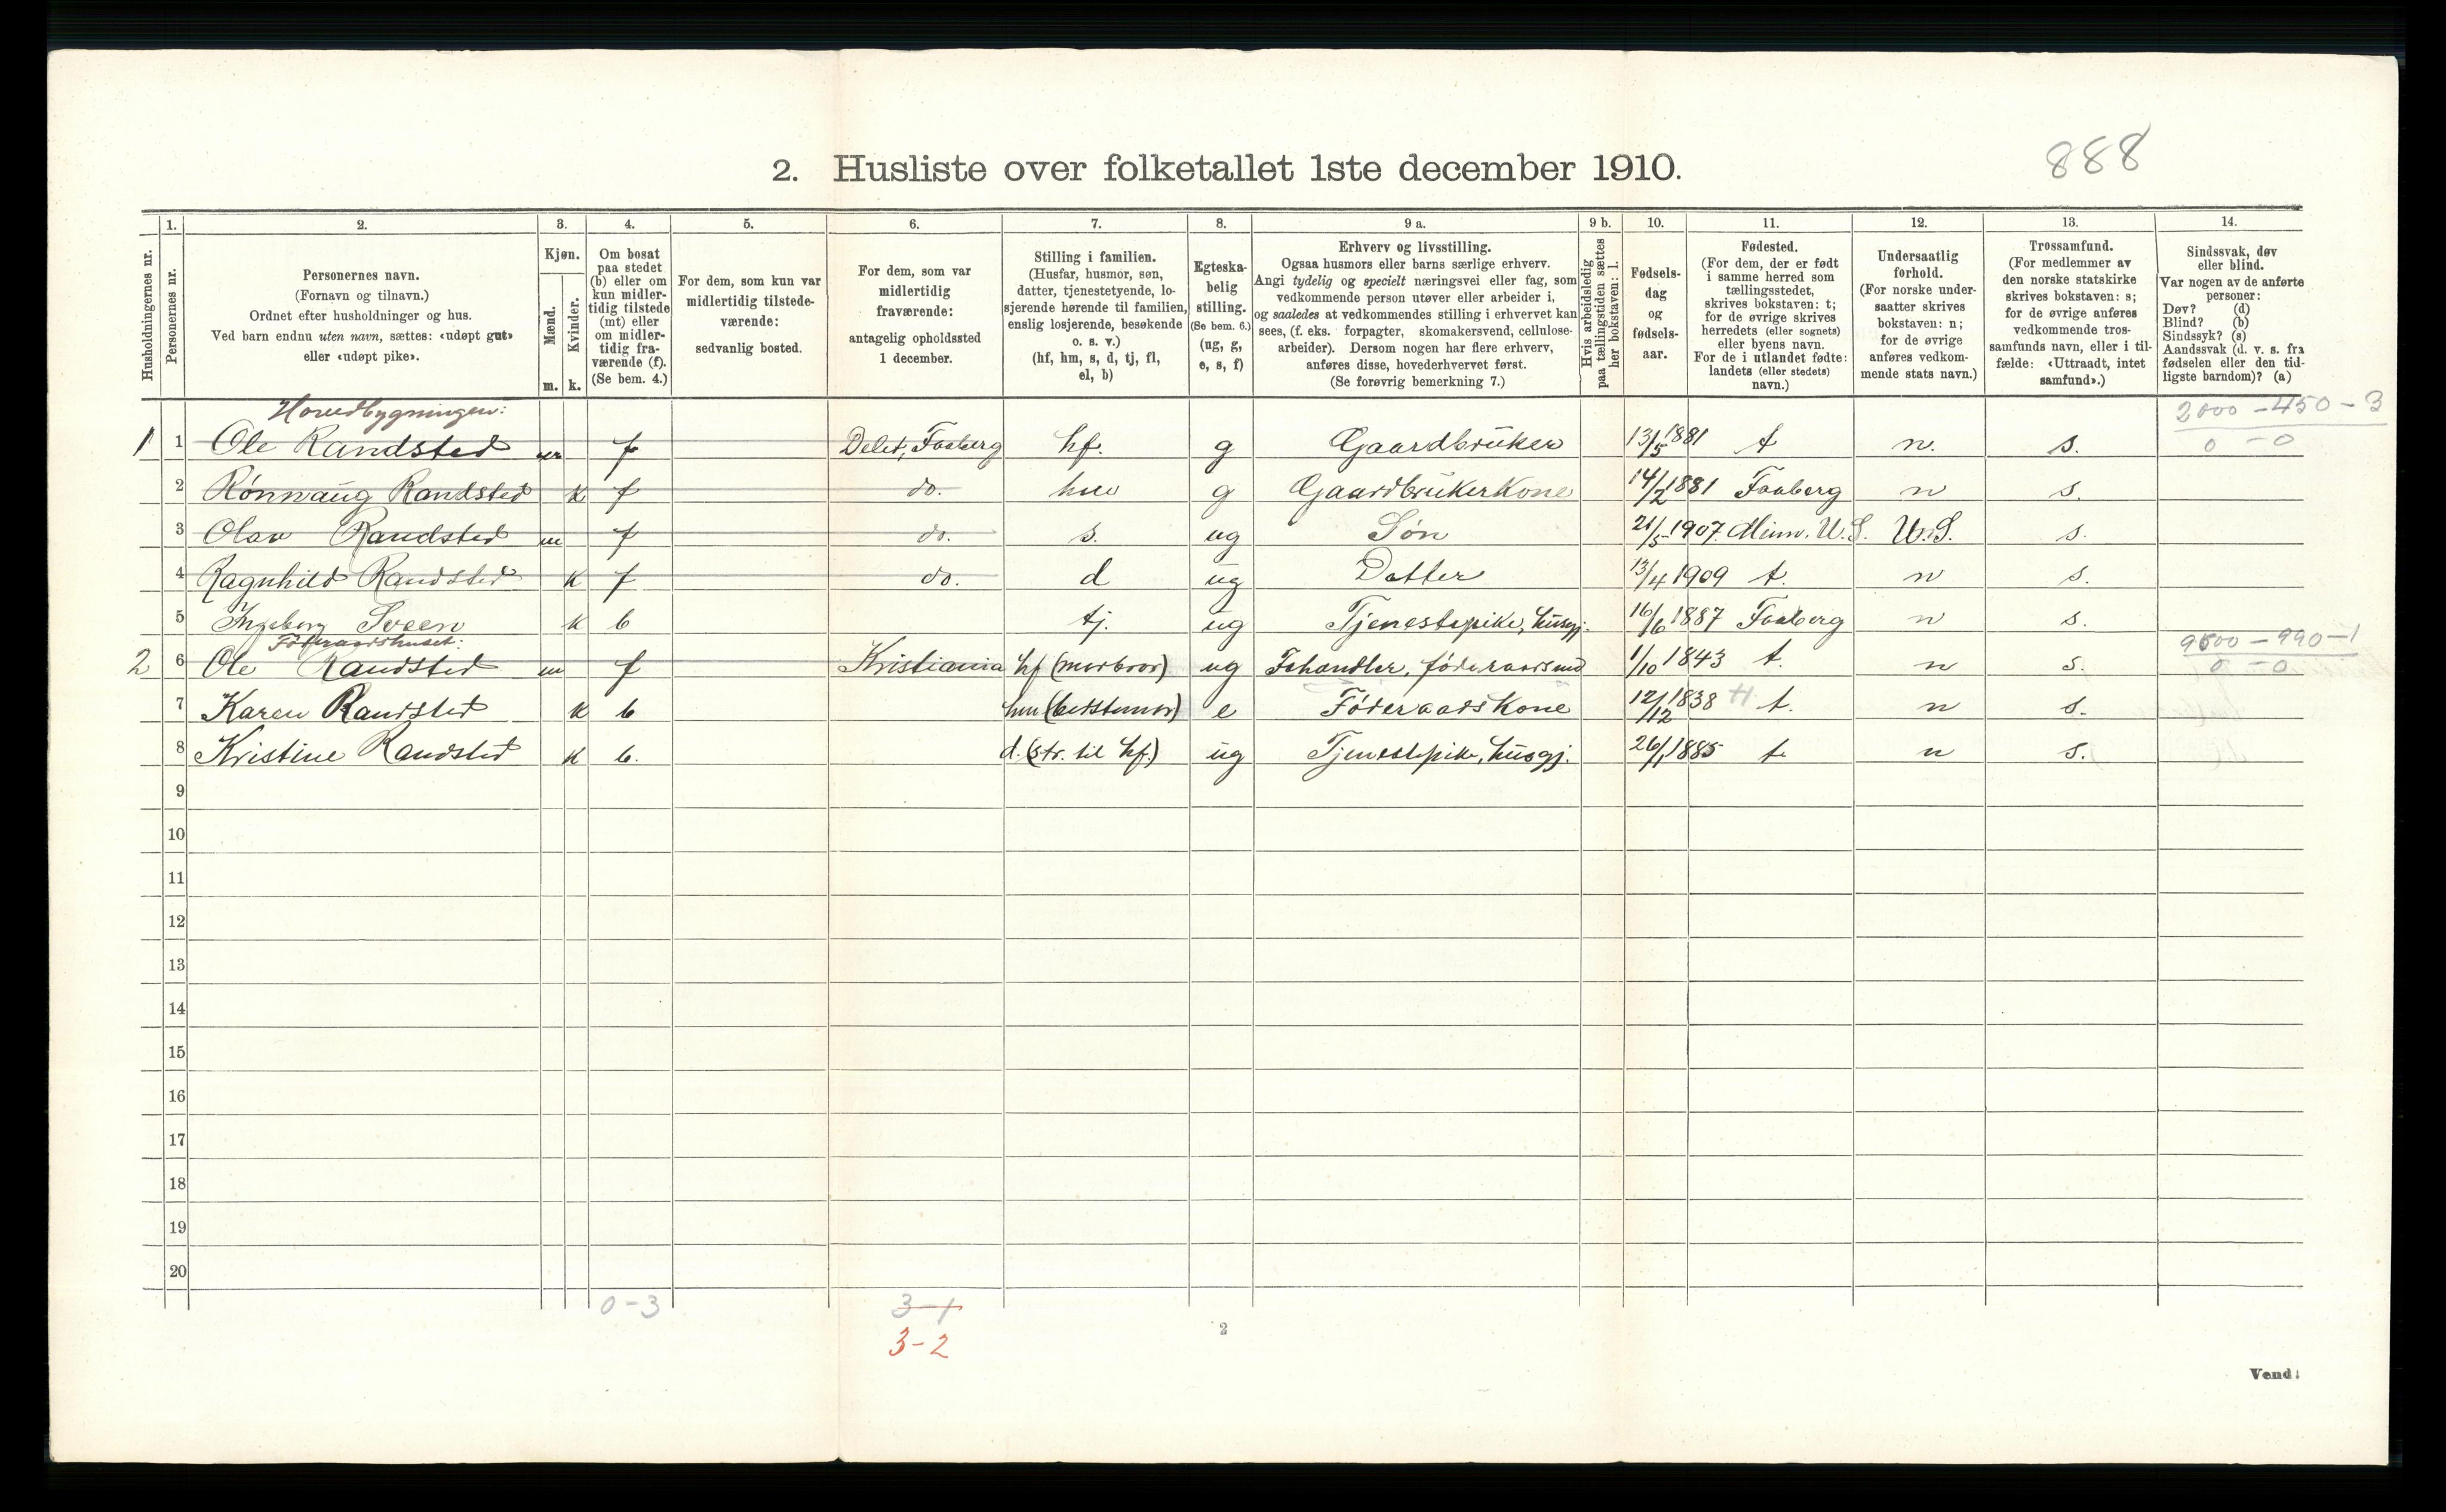 888
2. Husliste over folketallet 1ste december 1910.
1. 2. 3. 4. 5. 6. 7. 8. 9 a. 9 b. 10. 11. 12. 13. 14.
Husholdningernes nr.
Personernes nr.
Personernes navn.
(Fornavn og tilnavn.)
Ordnet efter husholdninger og hus.
Ved barn endnu uten navn, sættes: «udøpt gut»
eller «udøpt pike».
Kjøn.
Mænd.
Kvinder.
m. k.
Om bosat
paa stedet
(b) eller om
kun midler-
tidig tilstede
(mt) eller
om midler-
tidig fra-
værende (f).
(Se bem. 4.)
For dem, som kun var
midlertidig tilstede-
værende:
sedvanlig bosted.
For dem, som var
midlertidig
fraværende:
antagelig opholdssted
1 december.
Stilling i familien.
(Husfar, husmor, søn,
datter, tjenestetyende, lo-
sjerende hørende til familien,
enslig losjerende, besøkende
o. s. v.)
(hf, hm, s, d, tj, fl,
el, b)
Egteska-
belig
stilling.
(Se bem. 6.)
(ug, g,
e, s, f)
Erhverv og livsstilling.
Ogsaa husmors eller barns særlige erhverv.
Angi tydelig og specielt næringsvei eller fag, som
vedkommende person utøver eller arbeider i,
og saaledes at vedkommendes stilling i erhvervet kan
sees, (f. eks. forpagter, skomakersvend, cellulose-
arbeider). Dersom nogen har flere erhverv,
anføres disse, hovederhvervet først.
(Se forøvrig bemerkning 7.)
Hvis arbeidsledig
paa tællingstiden sættes
her bokstaven: l.
Fødsels-
dag
og
fødsels-
aar.
Fødested.
(For dem, der er født
i samme herred som
tællingsstedet,
skrives bokstaven: t;
for de øvrige skrives
herredets (eller sognets)
eller byens navn.
For de i utlandet fødte:
landets (eller stedets)
navn.)
Undersaatlig
forhold.
(For norske under-
saatter skrives
bokstaven: n;
for de øvrige
anføres vedkom-
mende stats navn.)
Trossamfund.
(For medlemmer av
den norske statskirke
skrives bokstaven: s;
for de øvrige anføres
vedkommende tros-
samfunds navn, eller i til-
fælde: «Uttraadt, intet
samfund».)
Sindssvak, døv
eller blind.
Var nogen av de anførte
personer:
Døv? (d)
Blind? (b)
Sindssyk? (s)
Aandssvak (d. v. s. fra
fødselen eller den tid-
ligste barndom)? (a)
Hovedbygningen: 2000 - 450 - 3
1 1 Ole Randsted m f Delet, Faaberg hf. g Gaardbruker 13/5 1881 t n. s. 0 - 0
2 Rønnaug Randsted k f do. hm g Gaardbrukerkone 14/2 1881 Faaberg n s.
3 Olav Randsted m f do. s. ug Søn 21/5 1907 Minn. U.S. U.S. s.
4 Ragnhild Randsted k f do. d ug Datter 13/4 1909 t. n s.
5 Ingeborg Sveen k b tj. ug Tjenestepike, husgj. 16/6 1887 Faaberg n s.
Føderaadshuset: 9500 - 990 - 1
2 6 Ole Randsted m f Kristiania hf (morbror) ug Fehandler, føderaadsmd 1/10 1843 t. n s. 0 - 0
7 Karen Randsted k b hm (bedstemor) e Føderaadskone 12/12 1838 t. n s.
8 Kristine Randsted k b. d. (str. til hf.) ug Tjenestepike, husgj. 26/1 1885 t n s.
9
10
11
12
13
14
15
16
17
18
19
20
0-3 3-1
3-2
2
Vend!